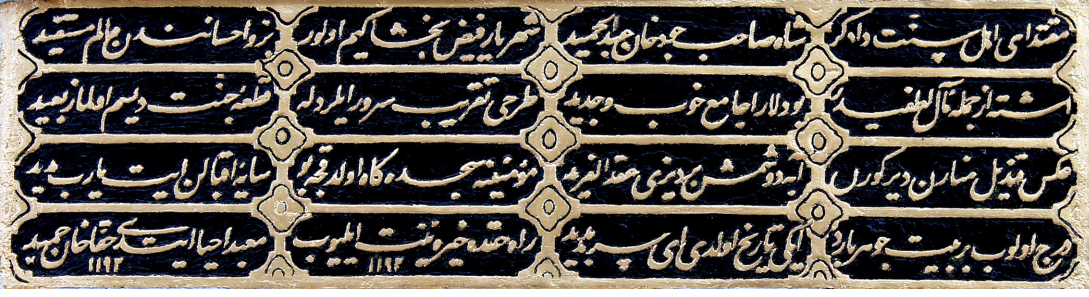 مقتدای اهل سنت دادگر شاه صاحب جود خان عبدالحمید شهریار فیض بخشا کیم اولور احسانندن عالم مستفید
از جمله لطفیدر بو دلارا جامع خوب و جدید طرحی تقریب سرور ایلر دله قطعهٔ جنت دیسم اولماز بعید
عکس قندیل منارن دیر کورن آبه دوشمش بر دیزی عقد الفرید مؤمنینه سجده گاه اولدقجه بو سایهٔ اقبالن ایت یا رب مدید
درج اولوب بر بیت جوهربارده ایکی تاریخ اولدی ای بدید راه حقده خیره نیت ایلیوب ۱۱۹۲ معبد احیا ایتدی حقا خان حمید ۱۱۹۲